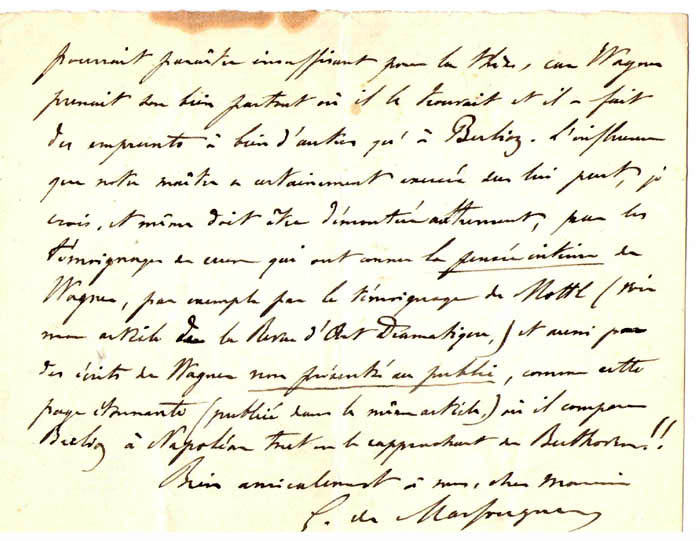 pourrait paraître insuffisant pour la thèse, car Wagner
prenait son bien partout où il le trouvait et il a fait
des emprunts à bien d'autres qu'à Berlioz. L'influence
que notre maître a certainement exercée sur lui peut, je
crois, et même doit être démontrée autrement, par les
témoignages de ceux qui ont connu la pensée intime de
Wagner, par exemple par le témoignage de Mottl (voir
mon article de la Revue d'Art Dramatique,) et aussi par
des écrits de Wagner non présentés au public, comme cette
page étonnante (publiée dans le même article,) où il compare
Berlioz à Napoléon tout en le rapprochant de Beethoven!!
Bien amicalement à vous, cher
G. de Massougnes